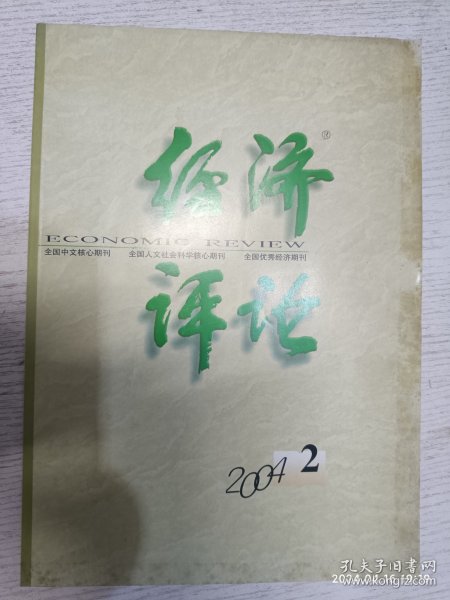 经济®
ECONOMIC REVIEW
全国中文核心期刊 全国人文社会科学核心期刊 全国优秀经济期刊
评论
2004 2
孔夫子旧书网